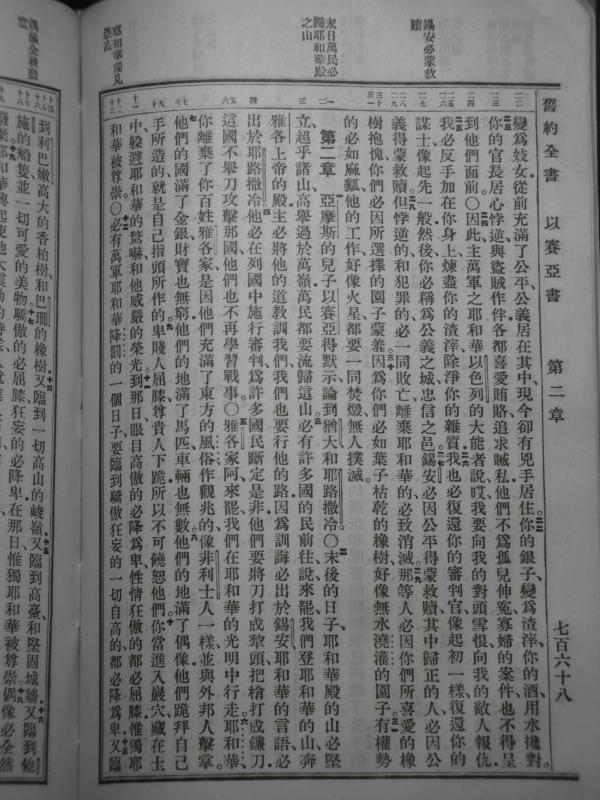 舊約全書 以賽亞書 第二章 七百六十八
錫安必蒙救贖
末日萬民必歸耶和華殿之山
耶和華獨見崇高
變爲妓女從前充滿了公平公義居在其中現今卻有兇手居住你的銀子變爲渣滓你的酒用水攙對
你的官長居心悖逆與盜賊作伴各都喜愛賄賂追求贓私他們不爲孤兒伸寃寡婦的案件也不得呈
到他們面前〇因此主萬軍之耶和華以色列的大能者說哎我要向我的對頭雪恨向我的敵人報仇
我必反手加在你身上煉盡你的渣滓除淨你的雜質我也必復還你的審判官像起初一樣復還你的
謀士像起先一般然後你必稱爲公義之城忠信之邑錫安必因公平得蒙救贖其中歸正的人必因公
義得蒙救贖但悖逆的和犯罪的必一同敗亡離棄耶和華的必致消滅那等人必因你們所喜愛的橡
樹抱愧你們必因所選擇的園子蒙羞因爲你們必如葉子枯乾的橡樹好像無水澆灌的園子有權勢
的必如麻瓤他的工作好像火星都要一同焚燬無人撲滅
第二章 亞摩斯的兒子以賽亞得默示論到猶大和耶路撒冷〇末後的日子耶和華殿的山必堅
立超乎諸山高舉過於萬嶺萬民都要流歸這山必有許多國的民前往說來罷我們登耶和華的山奔
雅各上帝的殿主必將他的道教訓我們我們也要行他的路因爲訓誨必出於錫安耶和華的言語必
出於耶路撒冷他必在列國中施行審判爲許多國民斷定是非他們要將刀打成犂頭把槍打成鐮刀
這國不舉刀攻擊那國他們也不再學習戰事〇雅各家阿來罷我們在耶和華的光明中行走耶和華
你離棄了你百姓雅各家是因他們充滿了東方的風俗作觀兆的像非利士人一樣並與外邦人擊掌
他們的國滿了金銀財寶也無窮他們的地滿了馬匹車輛也無數他們的地滿了偶像他們跪拜自己
手所造的就是自己指頭所作的卑賤人屈膝尊貴人下跪所以不可饒恕他們你當進入巖穴藏在土
中躱避耶和華的驚嚇和他威嚴的榮光到那日眼目高傲的必降爲卑性情狂傲的都必屈膝惟獨耶
和華被尊崇〇必有萬軍耶和華降罰的一個日子要臨到驕傲狂妄的一切自高的都必降爲卑又臨
到利巴嫩高大的香柏樹和巴珊的橡樹又臨到一切高山的峻嶺又臨到高臺和堅固城牆又臨到他
施的船隻並一切可愛的美物驕傲的必屈膝狂妄的必降卑在那日惟獨耶和華被尊崇偶像必全然